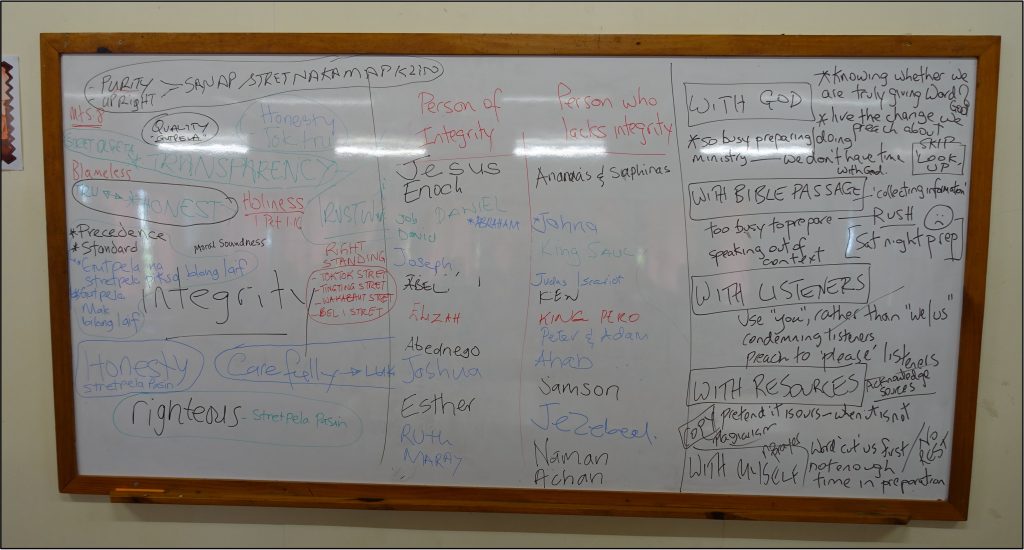 - PURITY > SANAP STRET NA KAMAP KLIN
UPRIGHT
Mt 5:8
QUALITY
GUTPELA
Honesty
Tok tru
TRANSPARENCY
Blameless
HONEST
Holiness
1 Pet 1:16
*Precedence
*Standard
Moral Soundness
stretpela
blong laif
Gutpela
Mak
bilong laif
Integrity
RIGHT
STANDING
- TOKTOK STRET
- TINGTING STRET
- WAKABAUT STRET
- BEL I STRET
Honesty
stretpela Pasin
Carefully → Luk
righteous - Stretpela Pasin
Person of
Integrity
Jesus
Enoch
Job DANIEL
*ABRAHAM
David
Joseph
ABEL
Abednego
Joshua
Esther
RUTH
MARAY
Person who
lacks integrity
Ananias & Saphiras
*Johna
King SAUL
Judas Iscariot
KEN
KING PERO
Peter & Adam
Ahab
Samson
Jezebeel.
Naman
Achan
WITH GOD
*Knowing whether we
are truly giving Word of
God?
*live the change we
preach about
*so busy preparing/doing
ministry — we don't have time
with God.
SKIP
LOOK
UP
WITH BIBLE PASSAGE
'collecting information'
too busy to prepare
speaking out of
context
RUSH
Set night prep
WITH LISTENERS
Use "you", rather than "we/us"
condemning listeners
preach to 'please' listeners
WITH RESOURCES
acknowledge
sources
COPY
pretend it is ours - when it is not
plagiarism
WITH MYSELF
Word cut us first
not enough
time in preparation
NO
REST